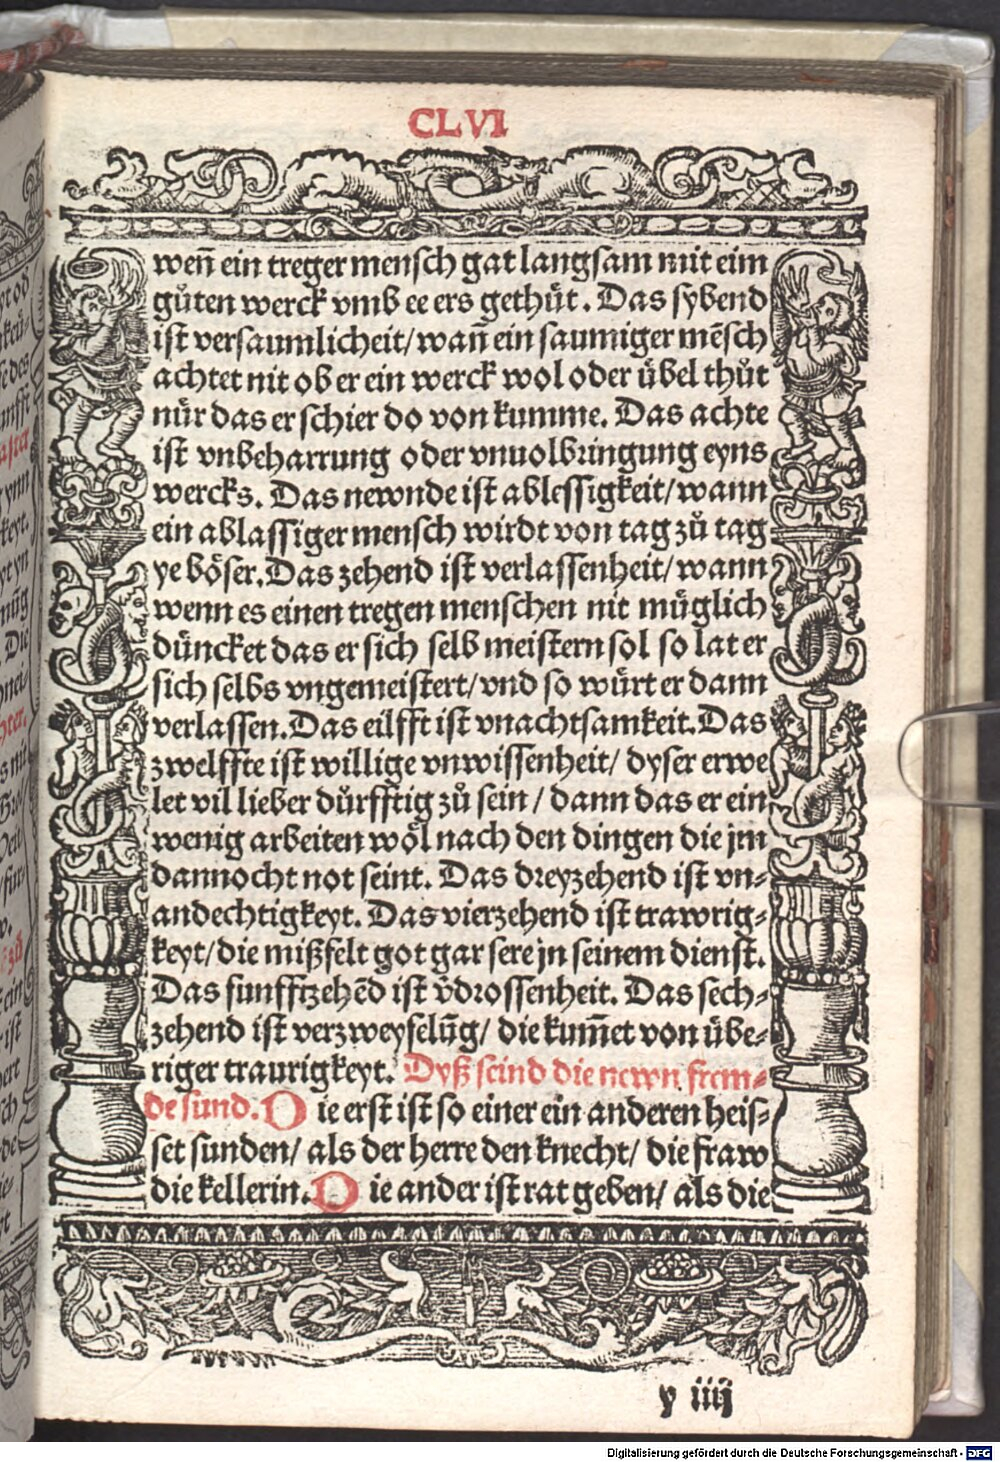 CLVI
weñ ein treger mensch gat langsam mit eim
gůten werck vmb ee ers gethůt. Das sybend
ist versaumlicheit/ wañ ein saumiger mẽsch
achtet nit ob er ein werck wol oder übel thůt
nür das er schier do von kumme. Das achte
ist vnbeharrung oder vnuolbringung eyns
wercks. Das newnde ist ablessigkeit/ wann
ein ablassiger mensch wirdt von tag zů tag
ye böser. Das zehend ist verlassenheit/ wann
wenn es einen tregen menschen nit müglich
düncket das er sich selb meistern sol so lat er
sich selbs vngemeistert/ vnd so würt er dann
verlassen. Das eilfft ist vnachtsamkeit. Das
zwelffte ist willige vnwissenheit/ dyser erwe
let vil lieber dürfftig zů sein / dann das er ein
wenig arbeiten wöl nach den dingen die jm
dannocht not seint. Das dreyzehend ist vn-
andechtigkeyt. Das vierzehend ist trawrig-
keyt/ die mißfelt got gar sere jn seinem dienst.
Das funfftzehẽd ist v̈drossenheit. Das sech-
zehend ist verzweyfelũg/ die kum̃et von übe-
riger traurigkeyt. Dyß seind die newn frem-
de sund. Die erst ist so einer ein anderen heis-
set sunden/ als der herre den knecht/ die fraw
die kellerin. Die ander ist rat geben/ als die
y iiij
Digitalisierung gefördert durch die Deutsche Forschungsgemeinschaft - DFG